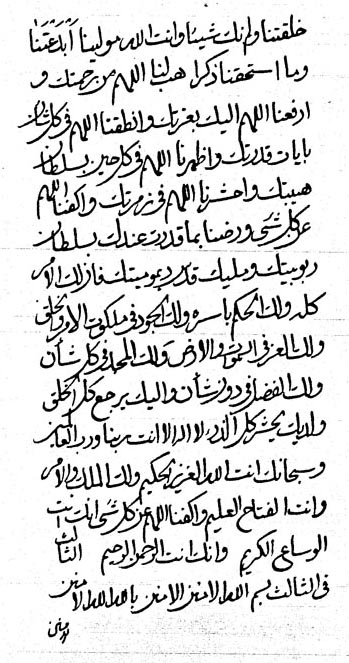 خلقتنا ولم نك شيئا وانت الله مولينا ابدعتنا
وما استحقنا ذكرا هب لنا اللهم من رحمتك و
ارفعنا اللهم اليك بعزتك وانطقنا اللهم فى كل شان
بايات قدرتك واظهرنا اللهم فى كل حين بسلطان
هيبتك واحشرنا اللهم فى زمرتك واكفنا اللهم
عن كل شئ ورضنا بما قدرت عندك بسلطان
ربوبيتك ومليك قدس ديموميتك فان لك الامر
كله ولك الحكم باسره ولك الجود فى ملكوت الامر والخلق
ولك العز فى السموات والارض ولك المجد فى كل شأن
ولك الفضل فى دون شأن واليك يرجع كل الخلق
ولديك يحشر كل الذر لا اله الا انت ربنا ورب العالمين
وسبحانك انت الله العزيز الحكيم ولك الملك والامر
وانت الفتاح العليم واكفنا اللهم عن كل شئ انك انت
الواسع الكريم وانك انت الرحمن الرحيم الثالث
فى الثالث بسم الله الامنن الامنن بالله الله الامنن
الامنن